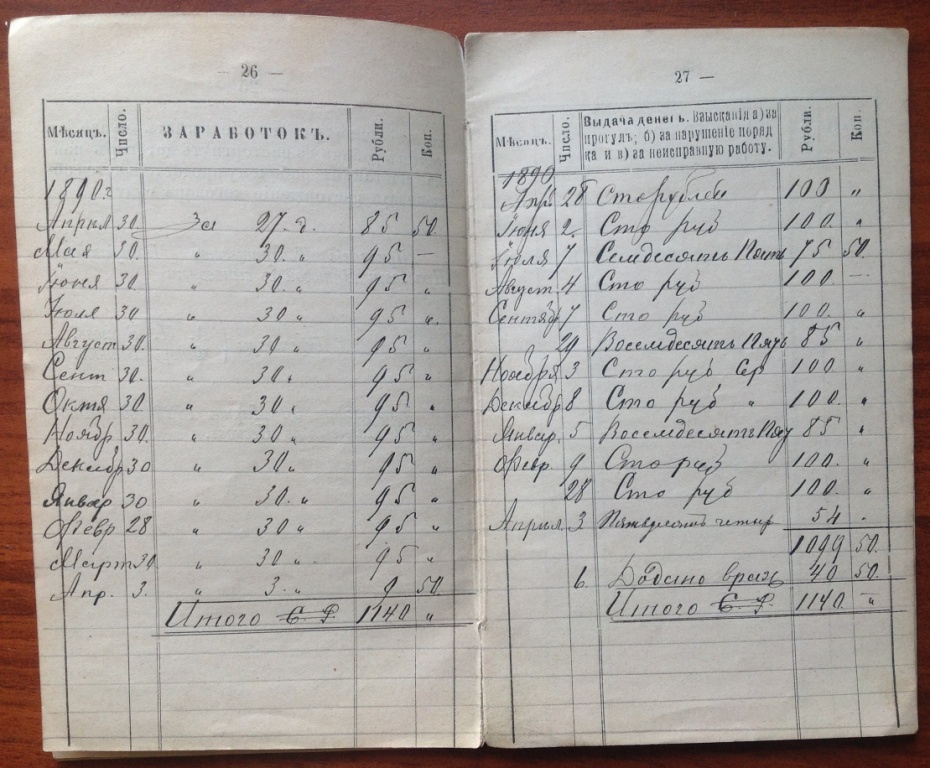 — 26 —
Мѣсяцъ. Число. ЗАРАБОТОКЪ. Рубли. Коп.
1890 г
Апрыл 30 За 27 д. 85 50
Мая 30. „ 30. „ 95 —
Іюня 30 „ 30. „ 95 „
Іюля 30 „ 30 „ 95 „
Август 30. „ 30 „ 95 „
Сент 30. „ 30. 95 „
Октя 30 „ 30 „ 95 „
Ноябр 30. „ 30 „ 95 „
Декабр 30 „ 30 „ 95 „
Январ 30 „ 30. „ 95 „
Февр 28 „ 30 „ 95 „
Март 30 „ 30 „ 95 „
Апр. 3. „ 3. „ 9 50
Итого С. Р. 1140 „
27 —
Мѣсяцъ. Число. Выдача денегъ. Взысканія а) за прогулъ; б) за нарушеніе поряд ка и в) за неисправную работу. Рубли. Коп.
1890
Апр 28 Сто рублей 100 „
Іюня 2 Сто руб 100 „
Іюля 7 Семдесять Пять 75 50
Август 4 Сто руб 100 —
Сентябр 7 Сто руб 100 „
29 Восемдесять Пять 85 „
Ноября 3 Сто руб Сер 100 „
Декабр 8 Сто руб „ 100 „
Январ. 5 Восемдесять Пят 85 „
Февр. 9 Сто руб 100 „
28 Сто руб 100 „
Апрыл 3 четыр 54 „
1099 50
6. Додано 40 50
Итого С. Р. 1140 „